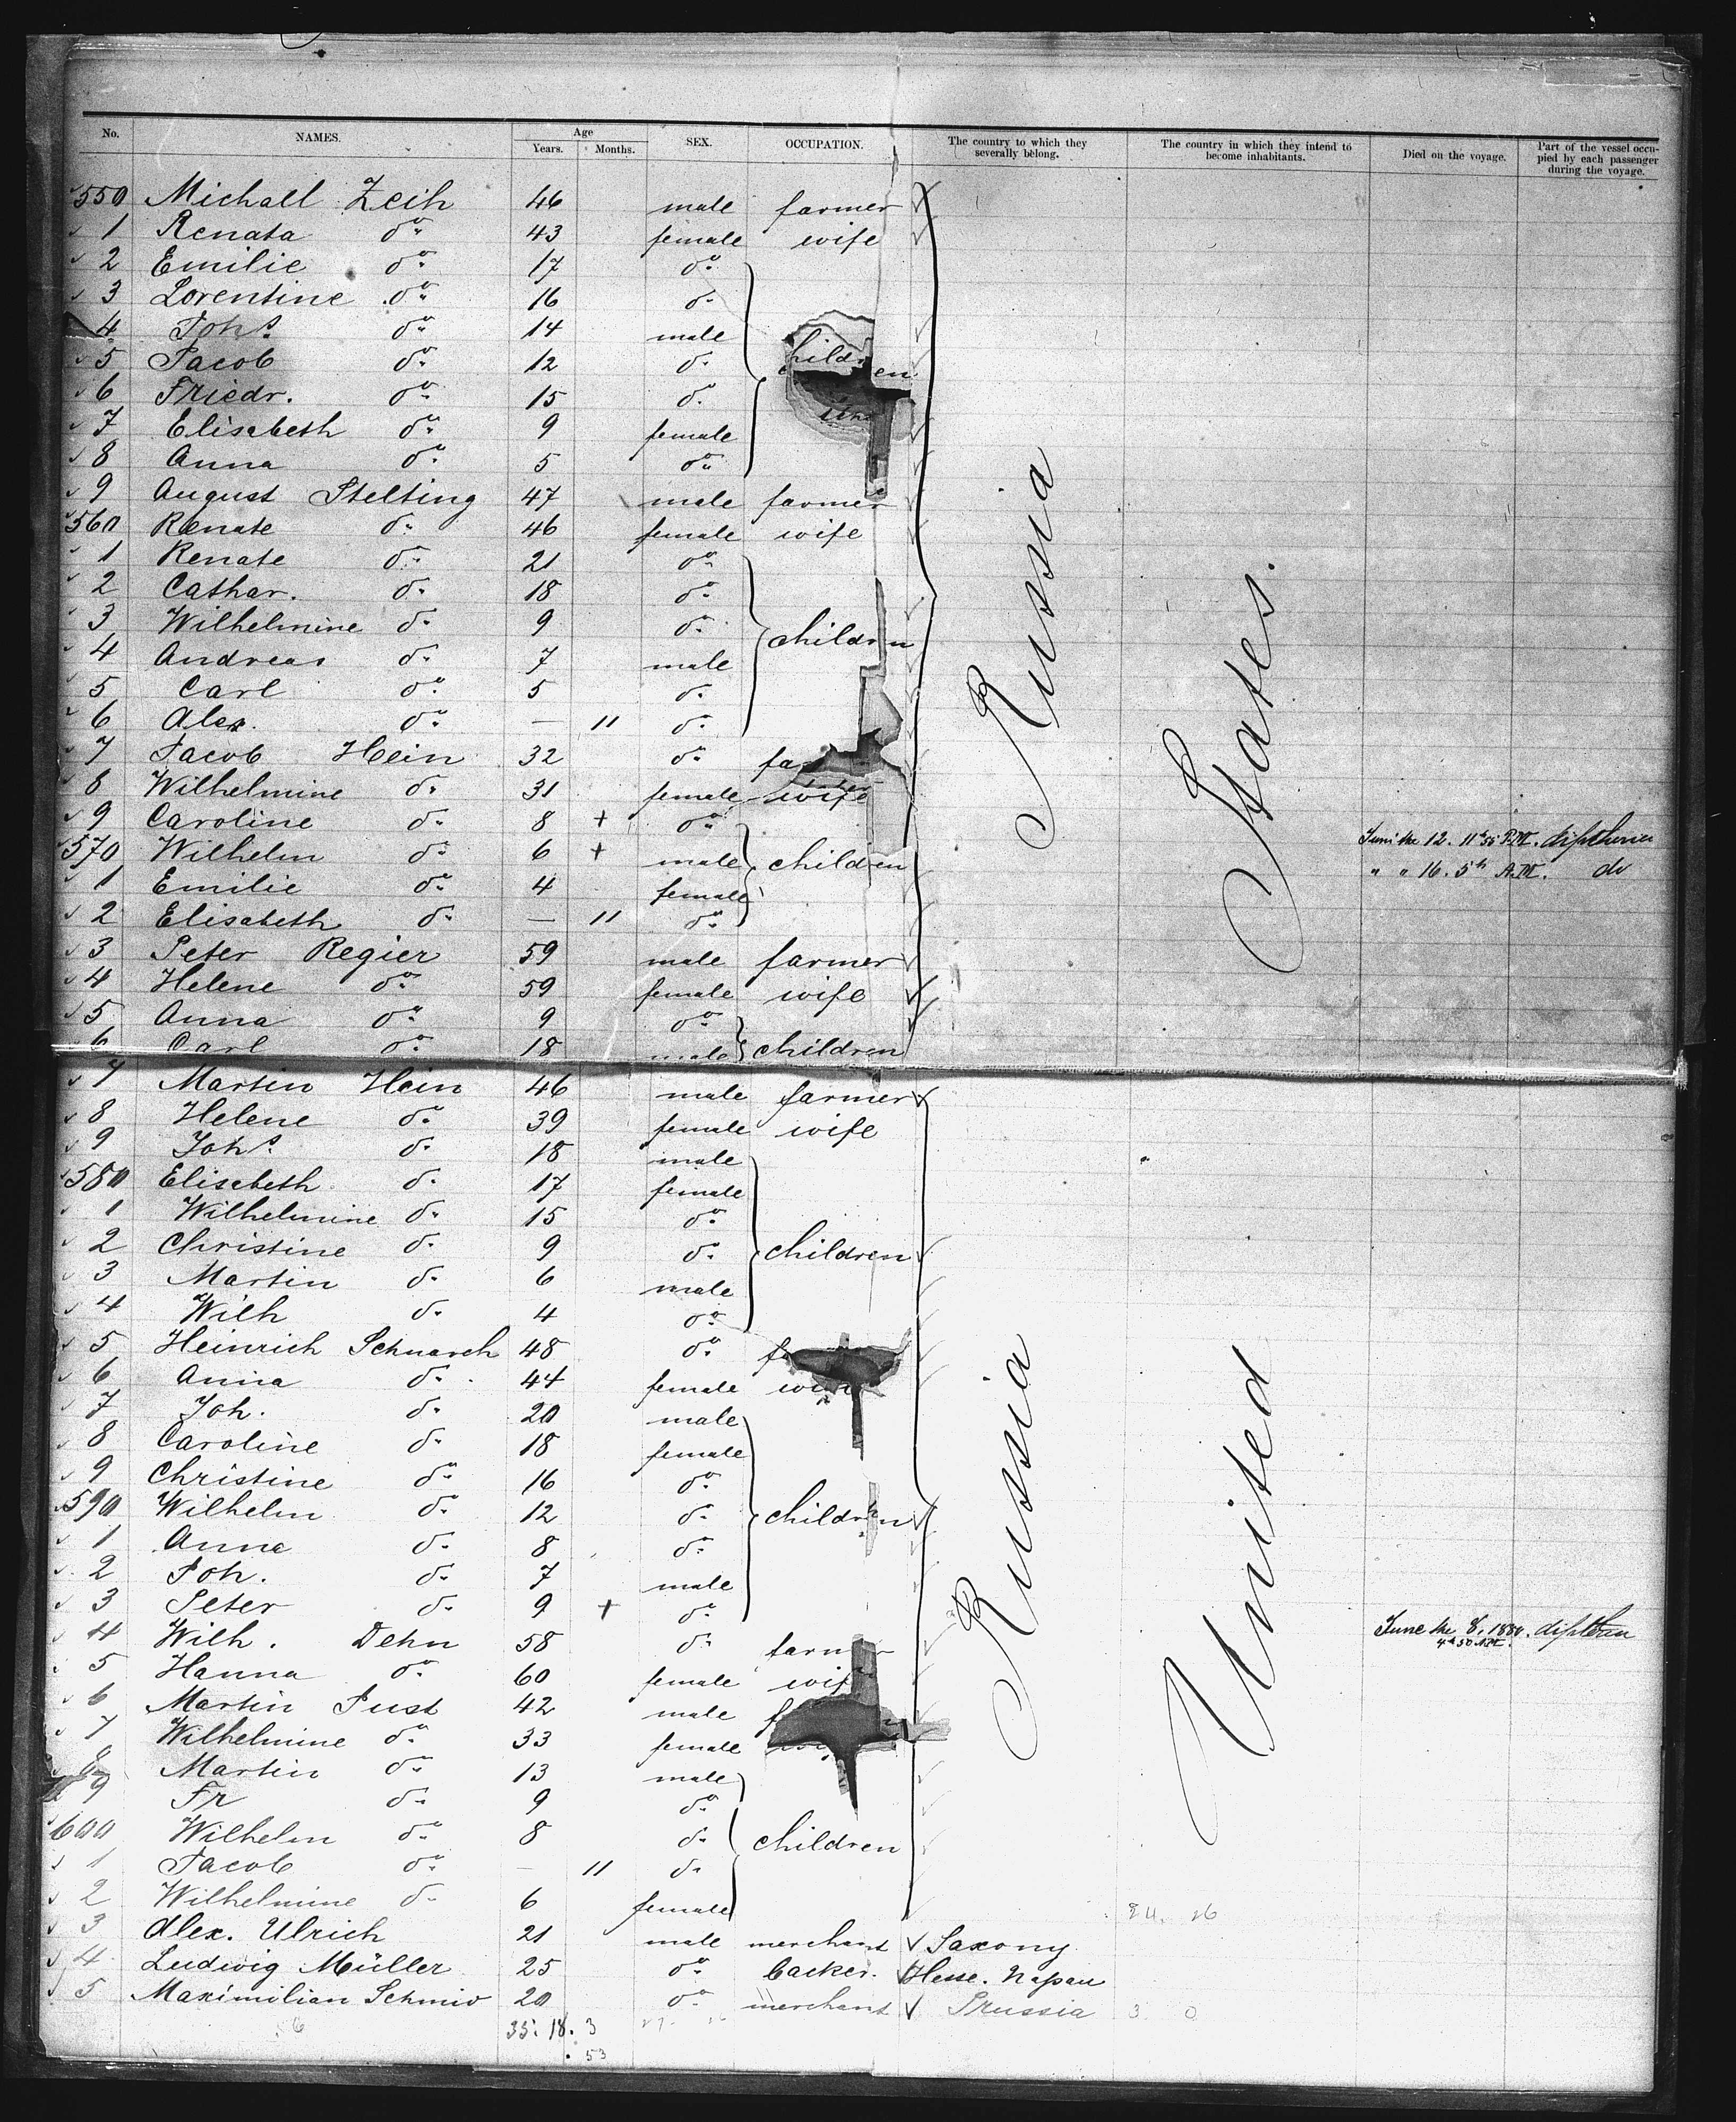 No. NAMES. Age Years. Months. SEX. OCCUPATION. The country to which they severally belong. The country in which they intend to become inhabitants. Died on the voyage. Part of the vessel occupied by each passenger during the voyage.
550 Michael Zeih 46 male farmer
1 Renata do 43 female wife
2 Emilie do 17 do
3 Lorentine do 16 do
4 Johs. do 14 male
5 Jacob do 12 do children
6 Friedr. do 15 do
7 Elisabeth do 9 female
8 Anna do 5 do
9 August Stelting 47 male farmer
560 Renate do 46 female wife
1 Renate do 21 do
2 Cathar. do 18 do
3 Wilhelmine do 9 do children
4 Andreas do 7 male
5 Carl do 5 do
6 Alex. do — 11 do
7 Jacob Hein 32 do
8 Wilhelmine do 31 female wife
9 Caroline do 8 + do June the 12. 11 h 50 P.M. diphtheria
570 Wilhelm do 6 + male children " " 16. 5 h A.M. do
1 Emilie do 4 female
2 Elisabeth do — 11 do
3 Peter Regier 59 male farmer
4 Helene do 59 female wife
5 Anna do 9 do
6 Carl do 18 male children
Russia
States.
7 Martin Hein 46 male farmer
8 Helene do 39 female wife
9 Johs. do 18 male
580 Elisabeth do 17 female
1 Wilhelmine do 15 do
2 Christine do 9 do children
3 Martin do 6 male
4 Wilh do 4 do
5 Heinrich Schnarch 48 do
6 Anna do 44 female wife
7 Joh. do 20 male
8 Caroline do 18 female
9 Christine do 16 do
590 Wilhelm do 12 do children
1 Anna do 8 do
2 Joh. do 7 male
3 Peter do 9 + do June the 8. 1880. 4 h 50
4 Wilh. Dehn 58 do farmer
5 Hanna do 60 female wife
6 Martin Just 42 male
7 Wilhelmine do 33 female
8 Martin do 13 male
9 Fr do 9 do
600 Wilhelm do 8 do children
1 Jacob do — 11 do
2 Wilhelmine do 6 female
Russia
United
3 Alex. Ulrich 21 male merchant Saxony
4 Ludwig Müller 25 do backer. Hesse. Nassau
5 Maximilian Schmid 20 do merchant Prussia 3 0
35. 18. 3
53